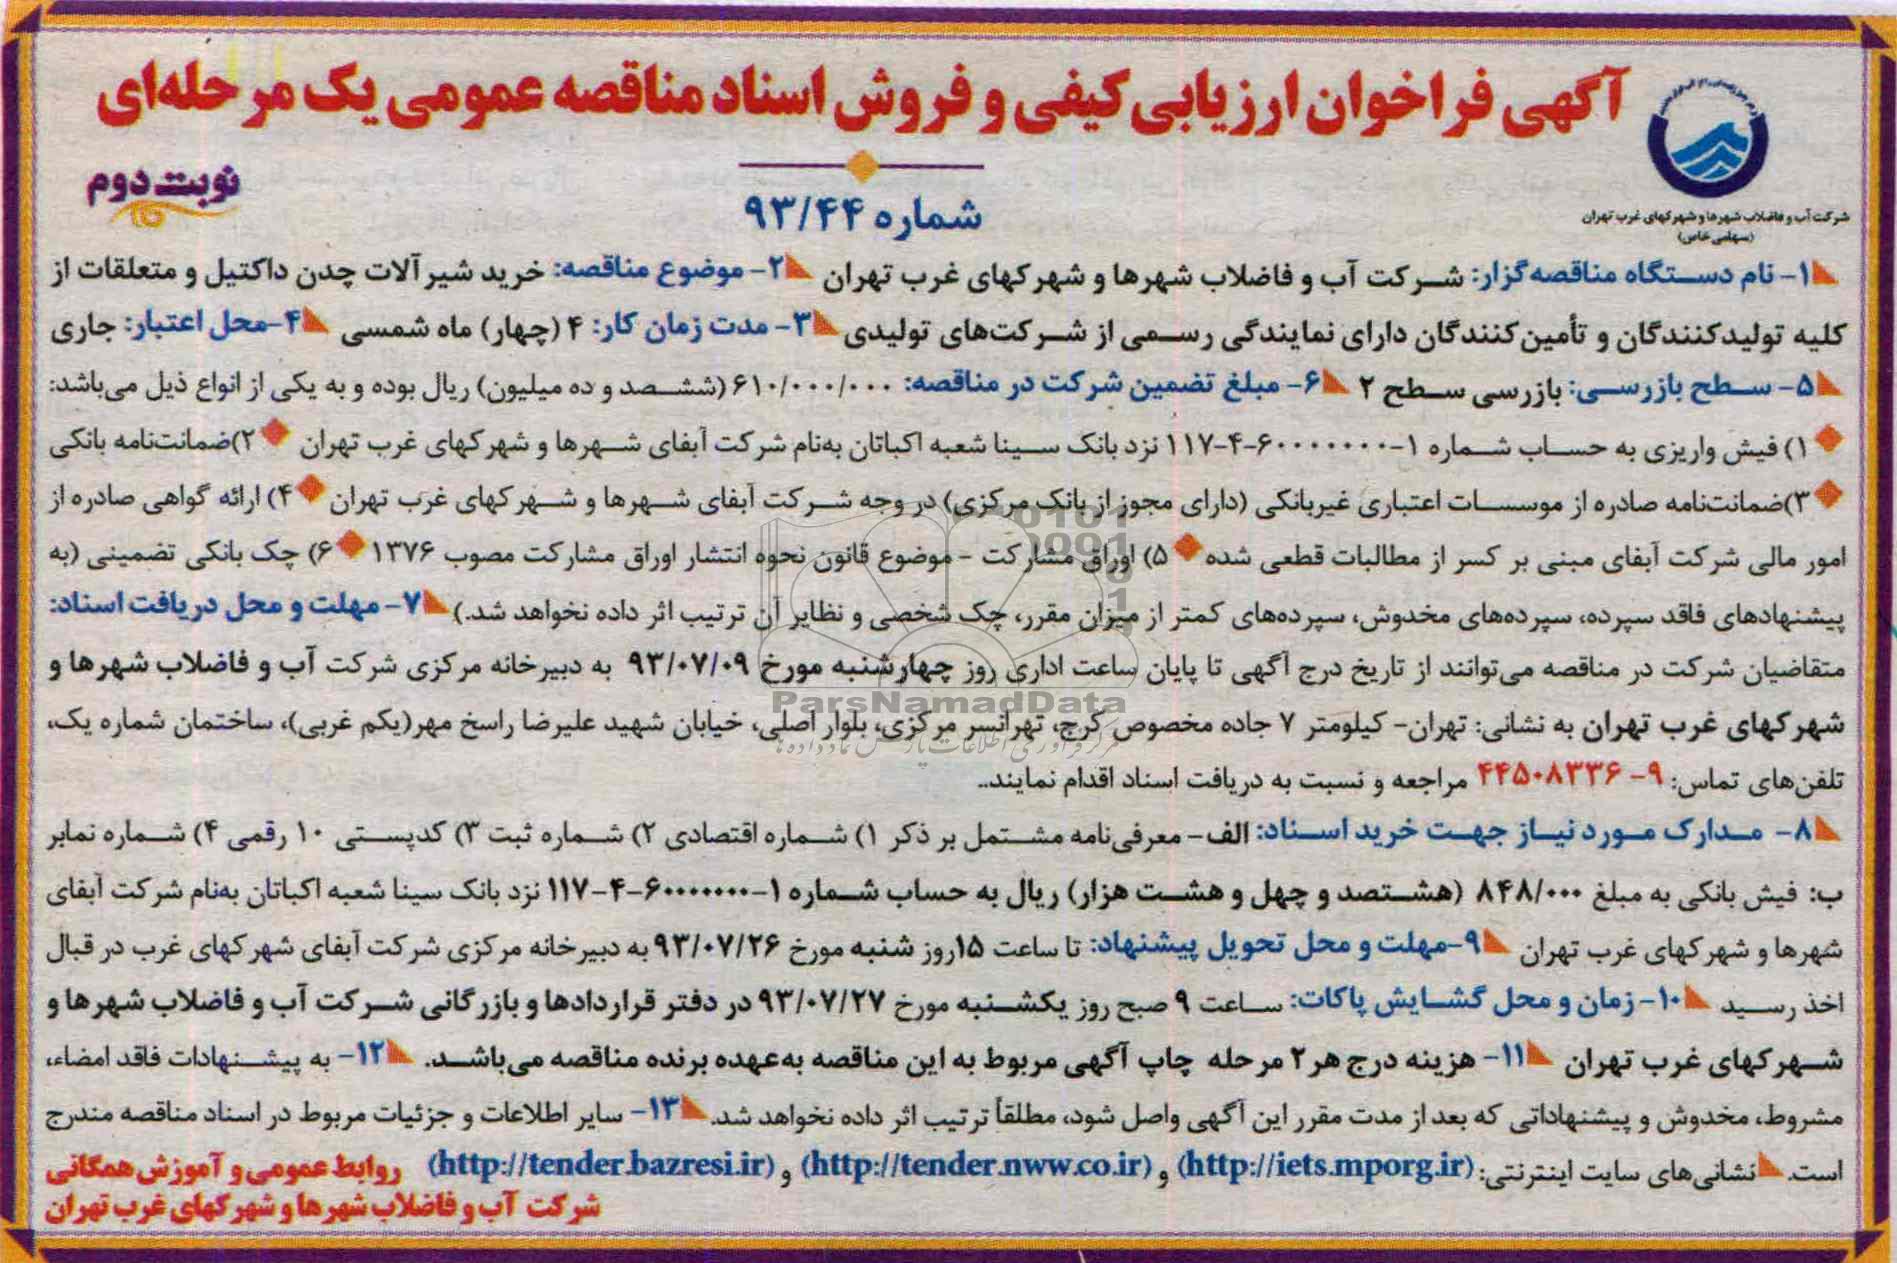 آگهی فراخوان ارزیابی کیفی و فروش اسناد مناقصه عمومی یک مرحله‌ای
شرکت آب و فاضلاب شهرها و شهرکهای غرب تهران
(سهامی خاص)
نوبت دوم
شماره ۹۳/۴۴
۱- نام دستگاه مناقصه‌گزار: شرکت آب و فاضلاب شهرها و شهرکهای غرب تهران ۲- موضوع مناقصه: خرید شیرآلات چدن داکتیل و متعلقات از
کلیه تولیدکنندگان و تأمین‌کنندگان دارای نمایندگی رسمی از شرکت‌های تولیدی ۳- مدت زمان کار: ۴ (چهار) ماه شمسی ۴-محل اعتبار: جاری
۵- سطح بازرسی: بازرسی سطح ۲ ۶- مبلغ تضمین شرکت در مناقصه: ۶۱۰/۰۰۰/۰۰۰ (ششصد و ده میلیون) ریال بوده و به یکی از انواع ذیل می‌باشد:
۱) فیش واریزی به حساب شماره ۱-۶۰۰۰۰۰۰۰-۴-۱۱۷ نزد بانک سینا شعبه اکباتان به‌نام شرکت آبفای شهرها و شهرکهای غرب تهران ۲)ضمانت‌نامه بانکی
۳)ضمانت‌نامه صادره از موسسات اعتباری غیربانکی (دارای مجوز از بانک مرکزی) در وجه شرکت آبفای شهرها و شهرکهای غرب تهران ۴) ارائه گواهی صادره از
امور مالی شرکت آبفای مبنی بر کسر از مطالبات قطعی شده ۵) اوراق مشارکت - موضوع قانون نحوه انتشار اوراق مشارکت مصوب ۱۳۷۶ ۶) چک بانکی تضمینی (به
پیشنهادهای فاقد سپرده، سپرده‌های مخدوش، سپرده‌های کمتر از میزان مقرر، چک شخصی و نظایر آن ترتیب اثر داده نخواهد شد.) ۷- مهلت و محل دریافت اسناد:
متقاضیان شرکت در مناقصه می‌توانند از تاریخ درج آگهی تا پایان ساعت اداری روز چهارشنبه مورخ ۹۳/۰۷/۰۹ به دبیرخانه مرکزی شرکت آب و فاضلاب شهرها و
شهرکهای غرب تهران به نشانی: تهران- کیلومتر ۷ جاده مخصوص کرج، تهرانسر مرکزی، بلوار اصلی، خیابان شهید علیرضا راسخ مهر(یکم غربی)، ساختمان شماره یک،
تلفن‌های تماس: ۹- ۴۴۵۰۸۳۳۶ مراجعه و نسبت به دریافت اسناد اقدام نمایند..
۸- مدارک مورد نیاز جهت خرید اسناد: الف- معرفی‌نامه مشتمل بر ذکر ۱) شماره اقتصادی ۲) شماره ثبت ۳) کدپستی ۱۰ رقمی ۴) شماره نمابر
ب: فیش بانکی به مبلغ ۸۴۸/۰۰۰ (هشتصد و چهل و هشت هزار) ریال به حساب شماره ۱-۶۰۰۰۰۰۰۰-۴-۱۱۷ نزد بانک سینا شعبه اکباتان به‌نام شرکت آبفای
شهرها و شهرکهای غرب تهران ۹-مهلت و محل تحویل پیشنهاد: تا ساعت ۱۵روز شنبه مورخ ۹۳/۰۷/۲۶ به دبیرخانه مرکزی شرکت آبفای شهرکهای غرب در قبال
اخذ رسید ۱۰- زمان و محل گشایش پاکات: ساعت ۹ صبح روز یکشنبه مورخ ۹۳/۰۷/۲۷ در دفتر قراردادها و بازرگانی شرکت آب و فاضلاب شهرها و
شهرکهای غرب تهران ۱۱- هزینه درج هر ۲ مرحله چاپ آگهی مربوط به این مناقصه به‌عهده برنده مناقصه می‌باشد. ۱۲- به پیشنهادات فاقد امضاء،
مشروط، مخدوش و پیشنهاداتی که بعد از مدت مقرر این آگهی واصل شود، مطلقاً ترتیب اثر داده نخواهد شد. ۱۳- سایر اطلاعات و جزئیات مربوط در اسناد مناقصه مندرج
است. نشانی‌های سایت اینترنتی: (http://iets.mporg.ir) و (http://tender.nww.co.ir) و (http://tender.bazresi.ir)
روابط عمومی و آموزش همگانی
شرکت آب و فاضلاب شهرها و شهرکهای غرب تهران
ParsNamadData